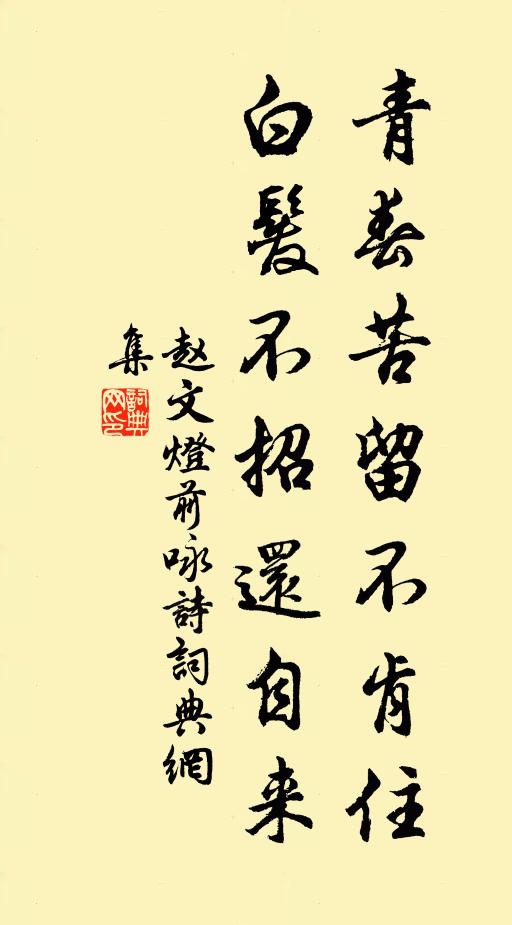 青春苦留不肯住
白髮不招還自来
赵文燈前咏詩詞典網
集
詞典网印